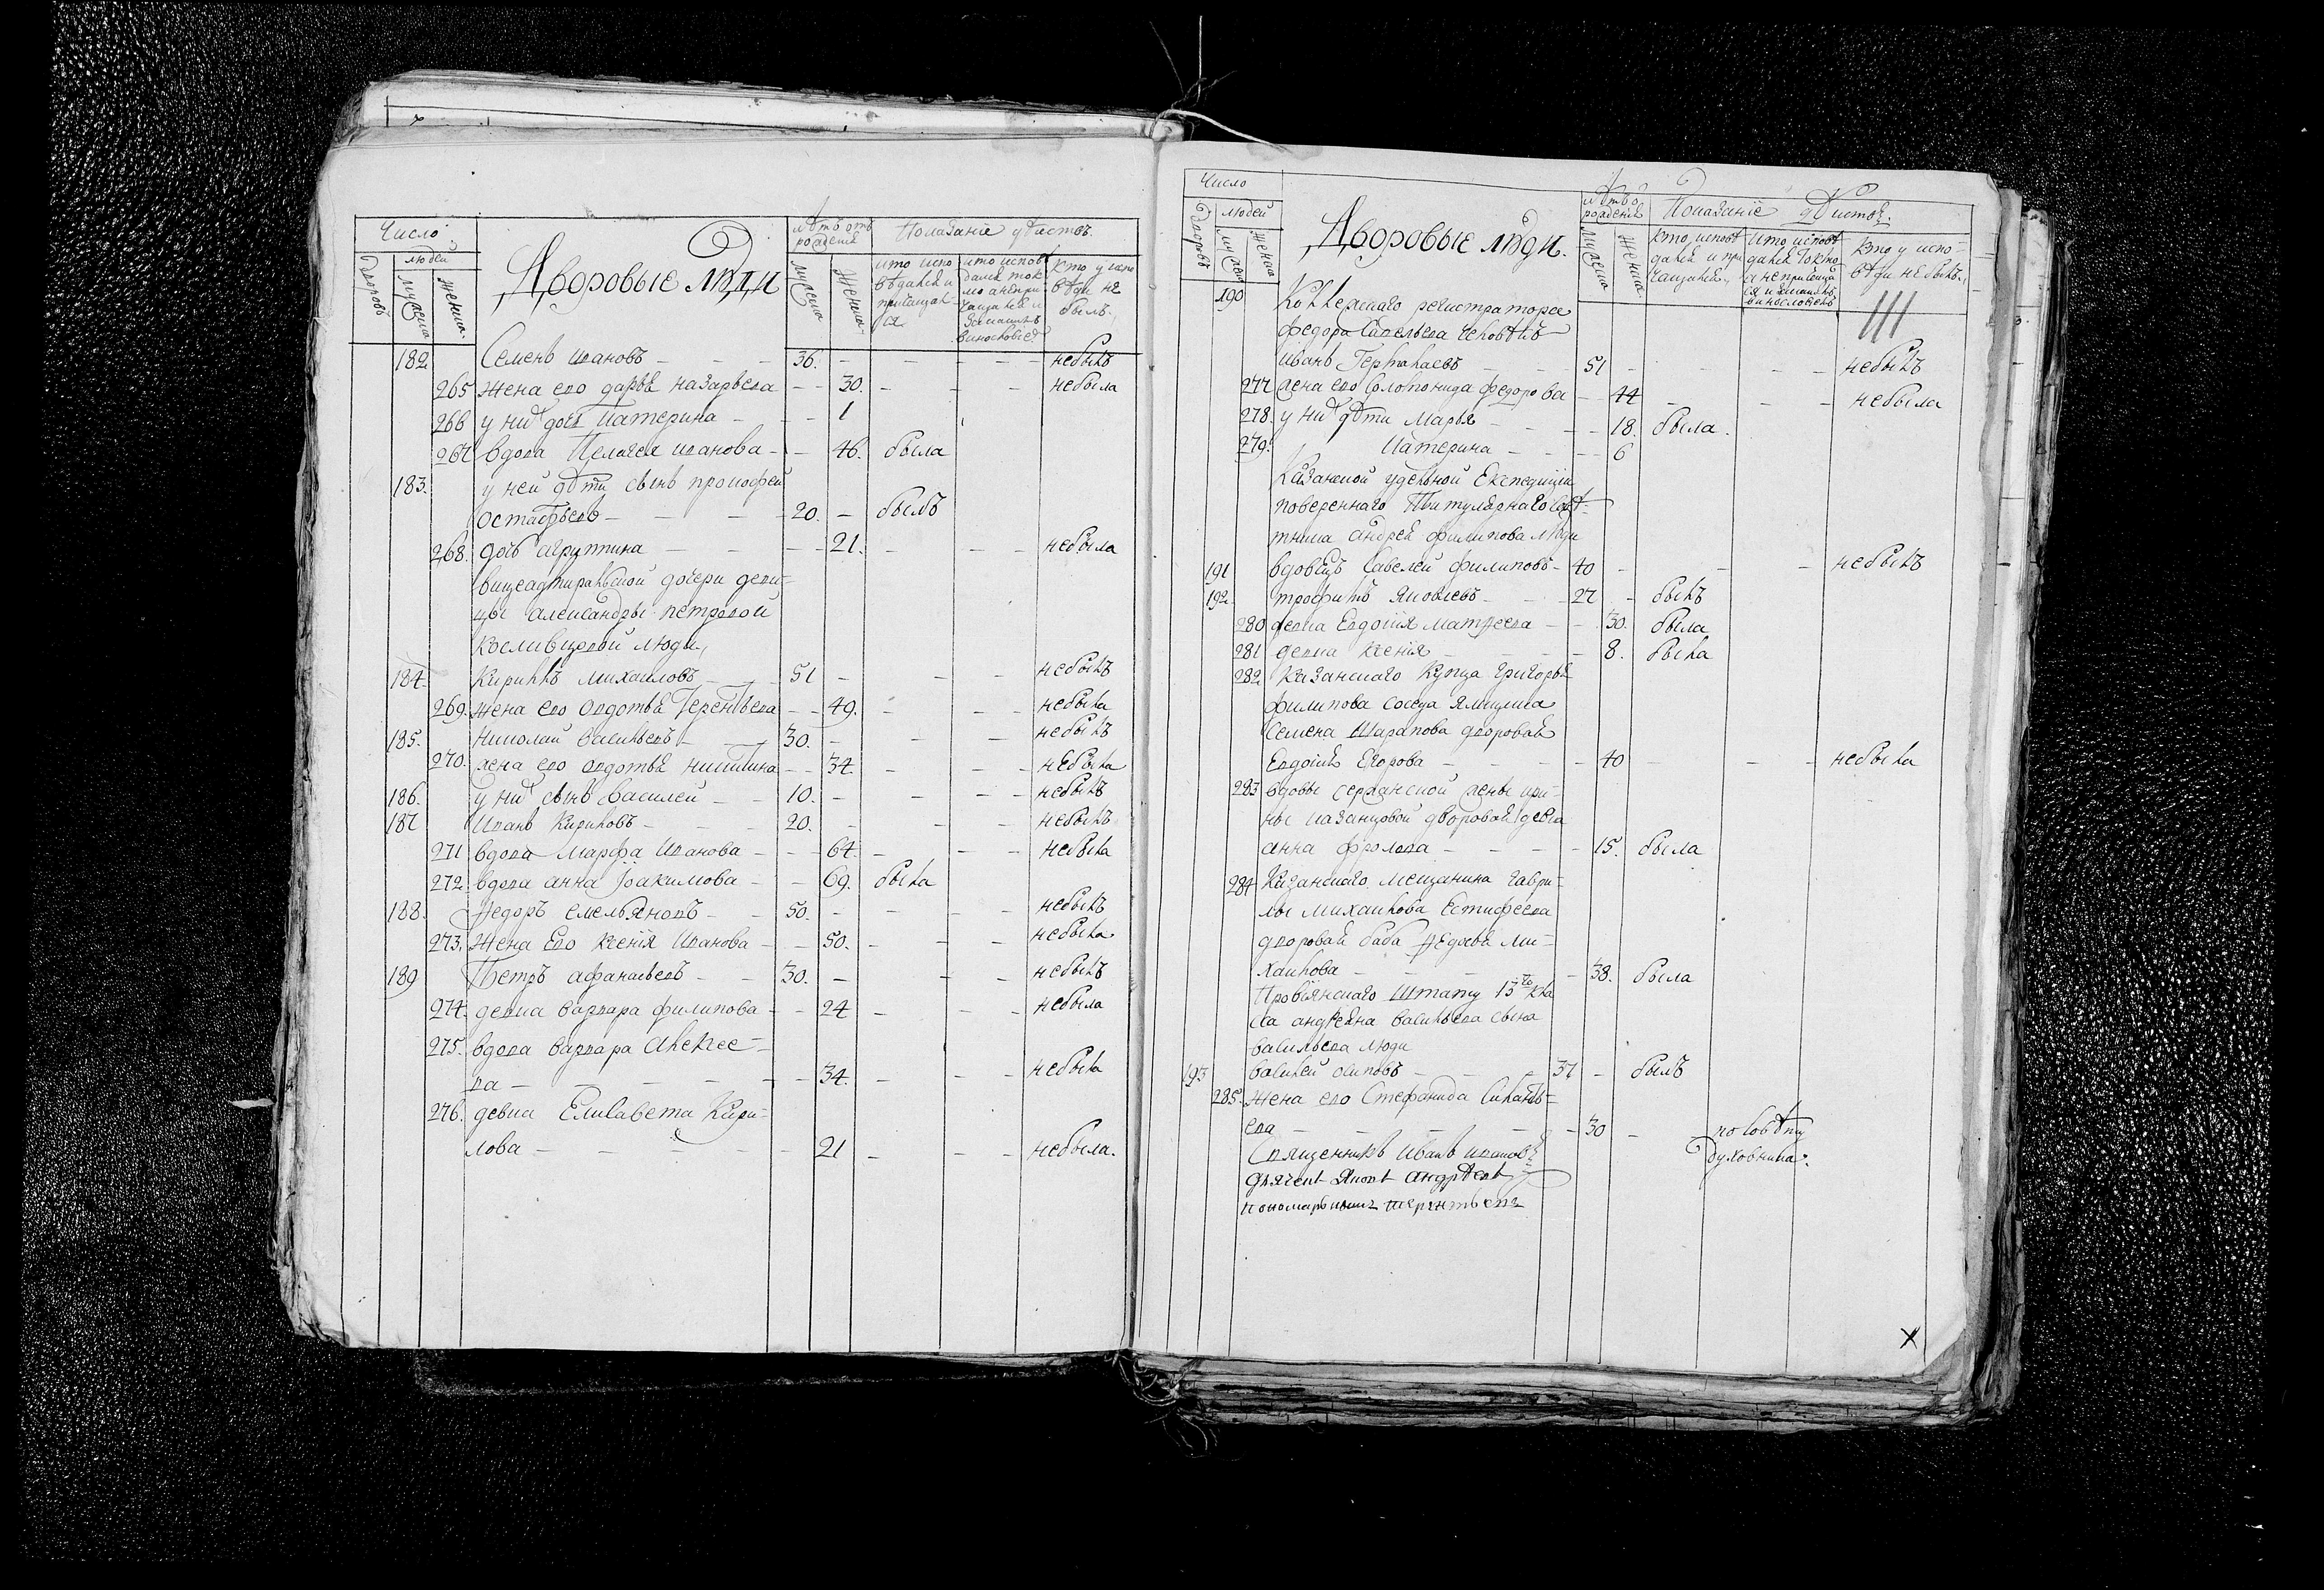 Число
людей
Дворовъ
мужска
женска
Дворовые люди
лѣтъ отъ
рожденїя
мужска
женска
Показанїе дѣйствъ
кто испо
вѣдался и
причащал
ся
кто исповѣ
дался ток
мо а непри
чащался и
за какимъ
винословїе
кто у испо
вѣди не
былъ
182 Семенъ Ивановъ — — — 36. — — — небылъ
265 жена его дарья назарьева — — 30. — — — небыла
266 у них дочь Катерина — — — 1
267 вдова Пелагея иванова — — 46. была
183. у ней дѣти сынъ прокофей
остафьевъ — — — 20. — былъ
268. дочь агрупина — — — 21. — — — небыла
вицеадмиральской дочери деви=
цы александры петровой
Косливцовой люди,
184. Кирилъ михаиловъ — — 51 — — — небылъ
269. жена его овдотья Терентьева — — 49. — — — небыла
185. Николай васильевъ — — 30. — — — небылъ
270. жена его овдотья никитина — — 34 — — — небыла
186. у них сынъ василей — — 10. — — — небылъ
187 Иванъ Кириловъ — — — 20. — — — небылъ
271 вдова Марфа Иванова — — — 64. — — — небыла
272. вдова анна Іоакимова — — 69. была
188. Ѳедоръ емельяновъ — — 50. — — — небылъ
273. жена Его ксенїя Иванова — — 50. — — — небыла
189 Петръ афанасьевъ — — 30. — — — небылъ
274. девка варвара филипова — — 24 — — — небыла
275. вдова варвара Алексее=
ва — — — — — 34. — — — небыла
276. девка Елисавета Кири=
лова — — — — — 21 — — — небыла.
Число
людей
Дворовъ
мужска
женска
Дворовые люди.
лѣтъ о
рожденїя
мужска
женска
Показанїе дѣйствъ.
кто исповѣ
дался и при
чащался,
кто исповѣ
дался токмо
а непричаща
ся и закакимъ
винословемъ
кто у испо=
вѣди не былъ.
III
190 Коллержскаго регистратора
федора Савельева человѣкъ
иванъ Герталаевъ — — 51 — — — небылъ
277 жена его Соломонида федорова — — 44 — — — небыла
278. у них дѣти Марья — — — 18. была.
279. Катерина — — — 6
Казанской удельной Експедицїи
повереннаго Титулярнаго совѣ=
тника андрея филипова люди
191 вдовецъ Савелей филиповъ — 40 — — — небылъ
192. трофимъ яковлевъ — — — 27 — былъ
280 девка Евдокїя матѳеева — — 30. была
281 девка ксенїя — — — 8. была
282 Казанскаго купца григорья
филипова соседа ямщика
Семена Шарапова дворовая
Евдокия Егорова — — — 40 — — — небыла
283 вдовы сержанской жены ири=
ны казанцовой дворовая девка
анна фролова — — — 15. была
284 Казанскаго мещанина гаври=
лы михаилова Естифеева
дворовая баба Ѳедосья ми=
хаилова — — — — 38. была
Провїянскаго Штату 13го кла
са андреяна васильева сына
васильева люди
193 василей осиповъ — — — 37 — былъ
285. жена его Стефанида Силанть=
ева — — — — — 30 — по совѣту
духовника.
Священникъ Иванъ ивановъ
дьячекъ яковъ андрѣевъ